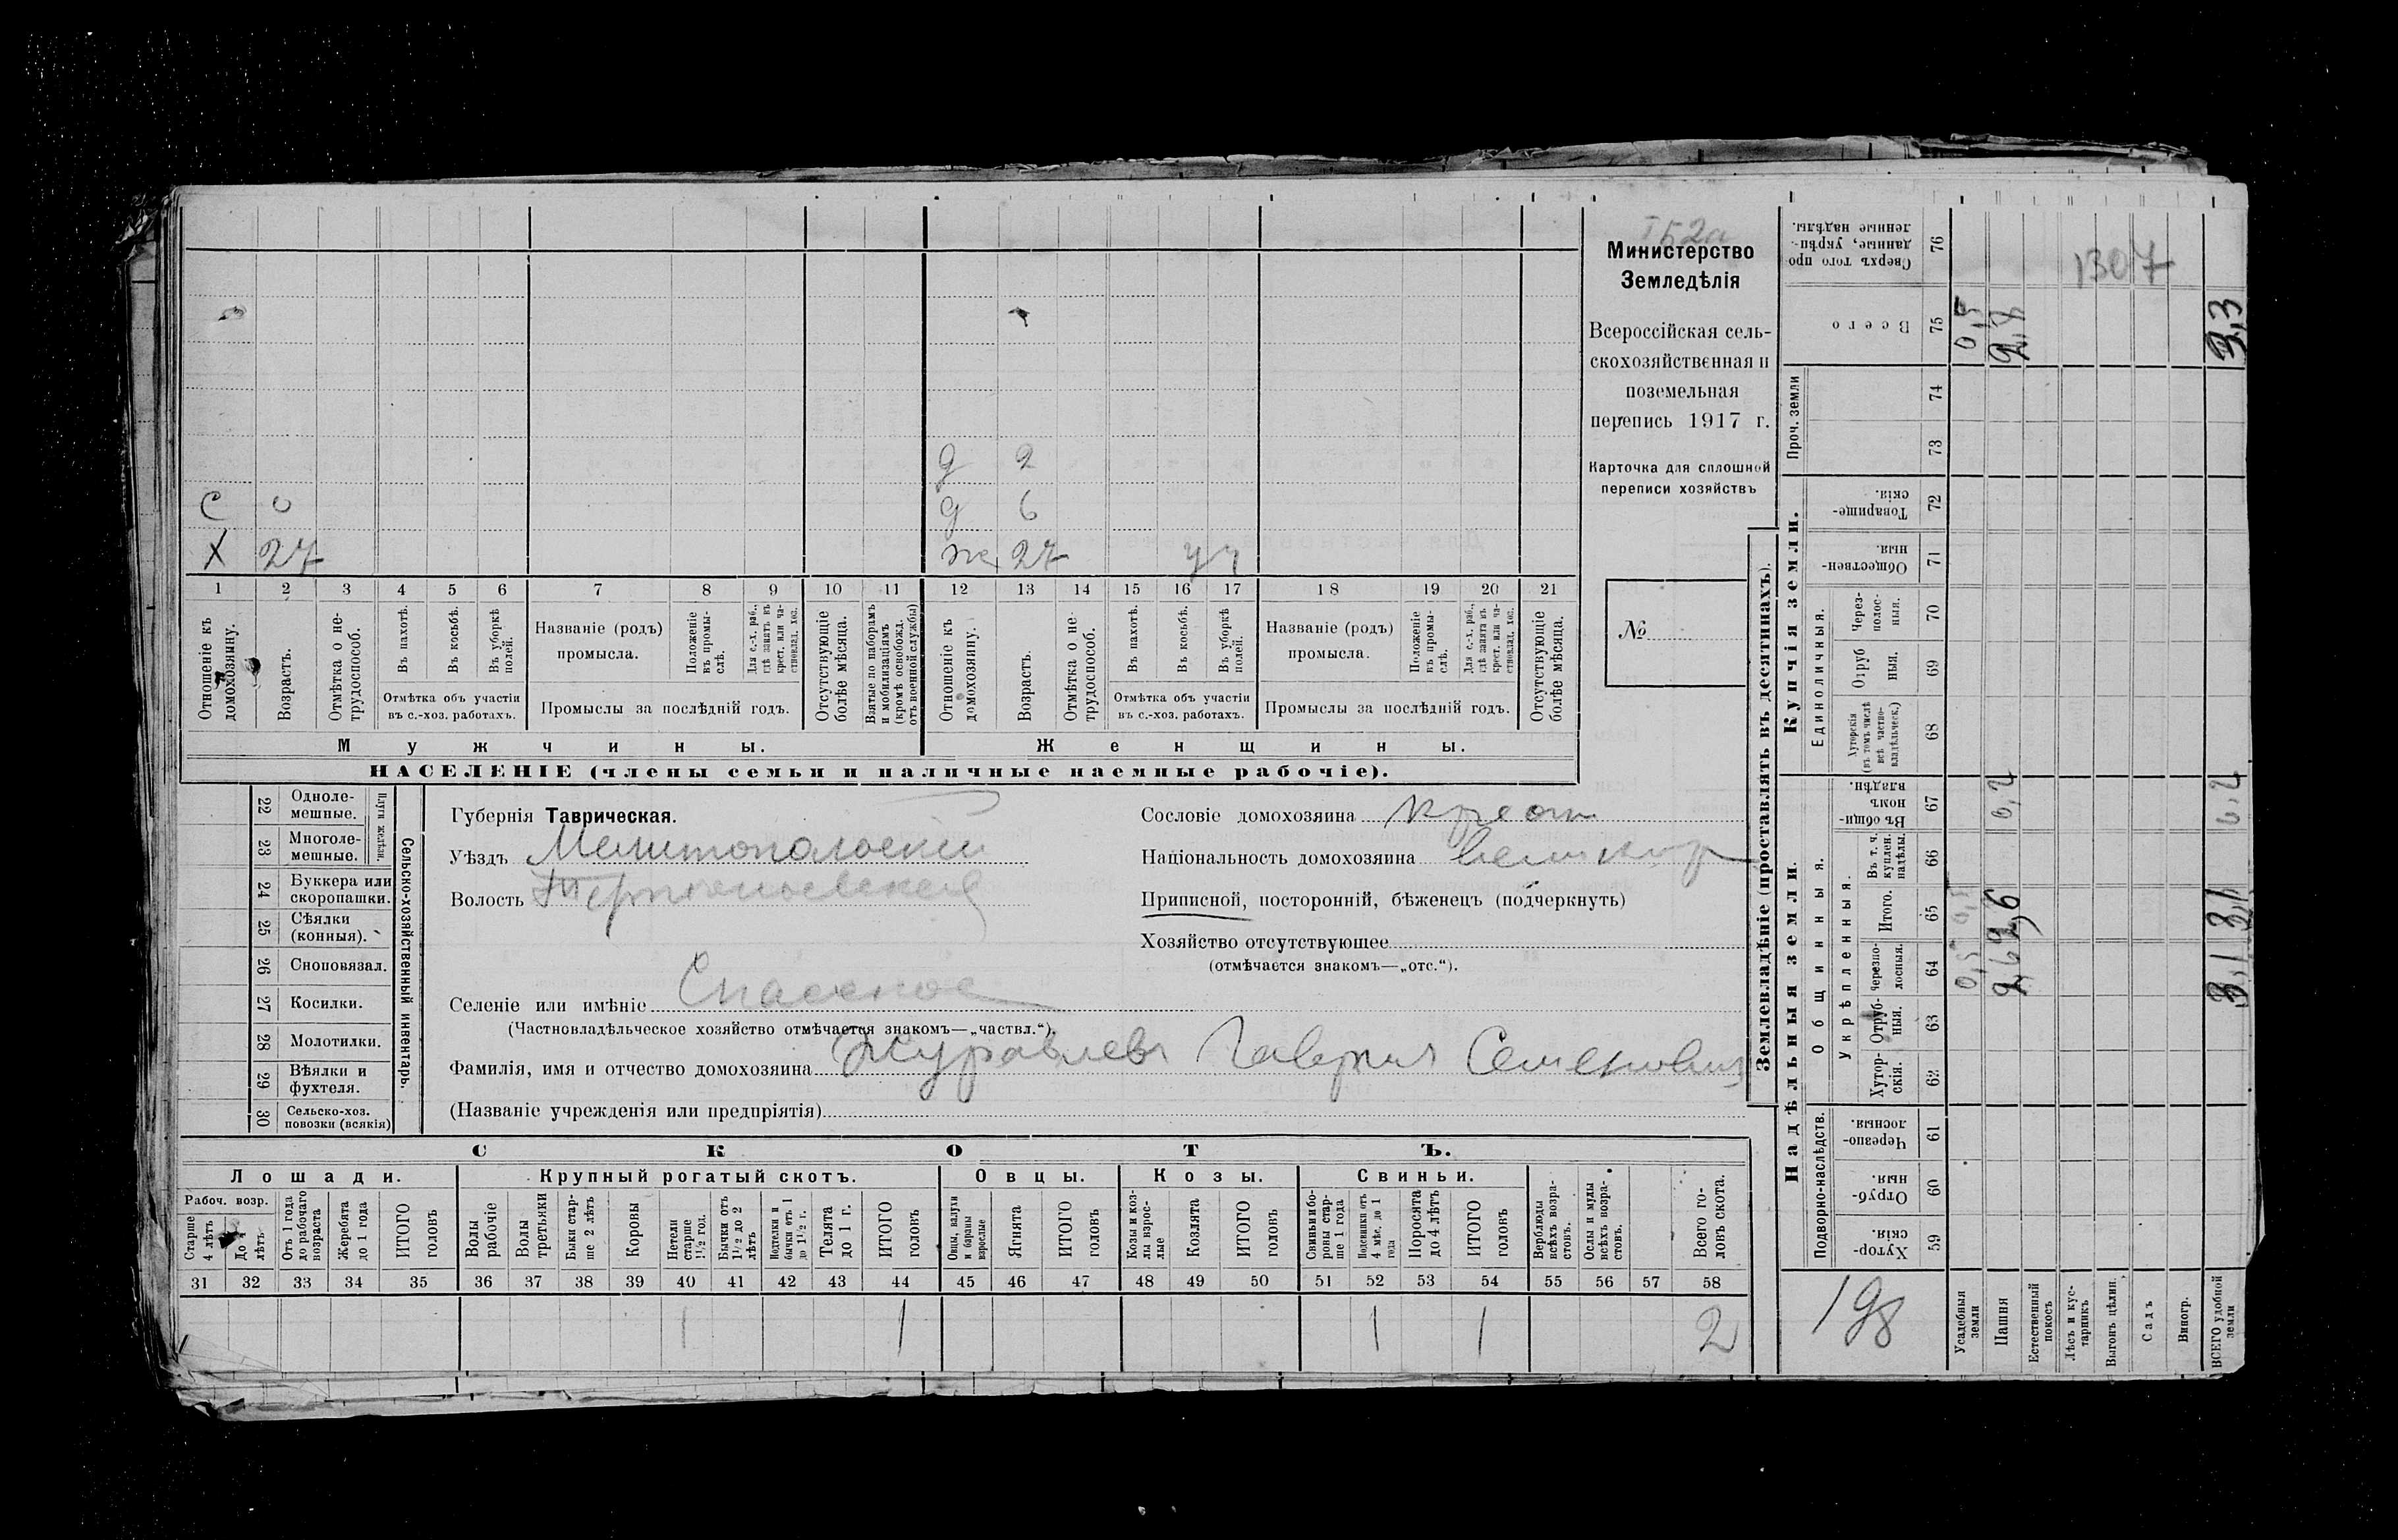 Министерство
Земледѣлія
Всероссійская сель-
скохозяйственная и
поземельная
перепись 1917 г.
Карточка для сплошной
переписи хозяйствъ
№
1307
д 2
С 0 д 6
Х 27 ж 27
1 2 3 4 5 6 7 8 9 10 11 12 13 14 15 16 17 18 19 20 21
Отношеніе къ домохозяину.
Возрастъ.
Отмѣтка о не-трудоспособ.
Въ пахотѣ.
Въ косьбѣ.
Въ уборкѣ полей.
Отмѣтка объ участіи
въ с.-хоз. работахъ.
Названіе (родъ)
промысла.
Положеніе въ промы-слѣ.
Для с.-х. раб., гдѣ занятъ въ крест. или ча-стновлад. хоз.
Промыслы за послѣдній годъ.
Отсутствующіе болѣе мѣсяца.
Взятые по наборамъ и мобилизаціямъ (кромѣ освобожд. отъ военной службы)
Отношеніе къ домохозяину.
Возрастъ.
Отмѣтка о не-трудоспособ.
Въ пахотѣ.
Въ косьбѣ.
Въ уборкѣ полей.
Отмѣтка объ участіи
въ с.-хоз. работахъ.
Названіе (родъ)
промысла.
Положеніе въ промы-слѣ.
Для с.-х. раб., гдѣ занята въ крест. или ча-стновлад. хоз.
Промыслы за послѣдній годъ.
Отсутствующіе болѣе мѣсяца.
Мужчины. Женщины.
НАСЕЛЕНІЕ (члены семьи и наличные наемные рабочіе).
22 Одноле-мешные.
23 Многоле-мешные.
Плуги желѣзн.
24 Буккера или скоропашки.
25 Сѣялки (конныя).
26 Сноповязал.
27 Косилки.
28 Молотилки.
29 Вѣялки и фухтеля.
30 Сельско-хоз. повозки (всякія)
Сельско-хозяйственный инвентарь.
Губернія Таврическая.
Уѣздъ Мелитопольскій
Волость
Селеніе или имѣніе Спасское
(Частновладѣльческое хозяйство отмѣчается знакомъ—„частвл.“).
Фамилія, имя и отчество домохозяина Журавлевъ Гаврилъ Семеновичъ
(Названіе учрежденія или предпріятія)
Сословіе домохозяина крест
Національность домохозяина великор
Приписной, посторонній, бѣженецъ (подчеркнуть)
Хозяйство отсутствующее
(отмѣчается знакомъ—„отс.“).
СКОТЪ.
Лошади. Крупный рогатый скотъ. Овцы. Козы. Свиньи.
Рабоч. возр.
Старше 4 лѣтъ
До 4 лѣтъ
Отъ 1 года до рабочаго возраста
Жеребята до 1 года
ИТОГО головъ
Волы рабочіе
Волы третьяки
Быки стар-ше 2 лѣтъ
Коровы
Нетели старше 1½ год.
Бычки отъ 1½ до 2 лѣтъ
Подтелки и бычки отъ 1 до 1½ г.
Телята до 1 г.
ИТОГО головъ
Овцы, валухи и бараны взрослые
Ягнята
ИТОГО головъ
Козы и коз-лы взрос-лые
Козлята
ИТОГО головъ
Свиньи и бо-ровы стар-ше 1 года
Подсвинки отъ 4 мѣс. до 1 года
Поросята до 4 лѣтъ
ИТОГО головъ
Верблюды всѣхъ возра-стовъ.
Ослы и мулы всѣхъ возра-стовъ.
Всего го-ловъ скота.
31 32 33 34 35 36 37 38 39 40 41 42 43 44 45 46 47 48 49 50 51 52 53 54 55 56 57 58
1 1 1 1 2
Землевладѣніе (проставлять въ десятинахъ).
Надѣльныя земли. Купчія земли. Проч. земли
Подворно-наслѣдств.
Общинныя.
Укрѣпленныя.
Единоличныя.
Хутор-скія. 59
Отруб-ныя. 60
Черезпо-лосныя. 61
Хутор-скія. 62
Отруб-ныя. 63
Черезпо-лосныя. 64
Итого. 65
Въ т. ч. куплен. надѣлы. 66
Въ общи-номъ владѣн. 67
Хуторскія (въ томъ числѣ всѣ частно-владѣльческ.) 68
Отруб ныя. 69
Через-полос-ныя. 70
Обществен-ныя. 71
Товарище-скія. 72
73
74
Всего 75
Сверхъ того про данные, укрѣп-ленные надѣлы. 76
198
Усадебныя земли 0,5 0,5 0,5
Пашня 2,6 2,6 0,2 2,8
Естественный покосъ
Лѣсъ и кус-тарникъ
Выгонъ цѣлин.
Садъ
Виногр.
ВСЕГО удобной земли 3,1 3,1 0,2 3,3